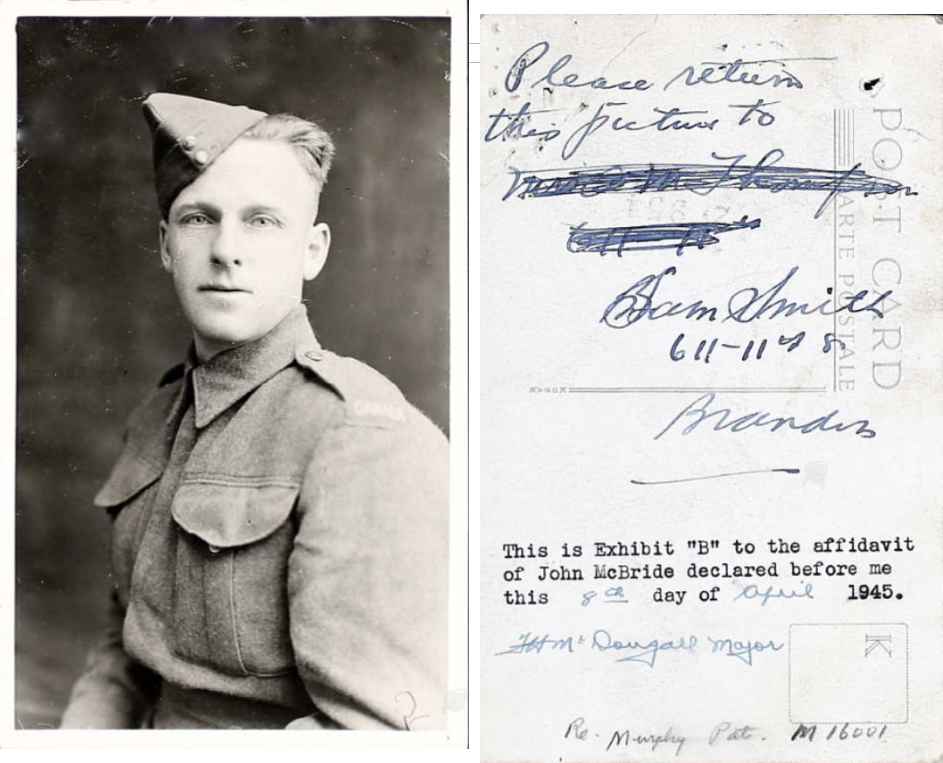 CANADA
Please return
this picture to
Thompson
611
Sam Smith
611-11th St
Brandon
POST CARD
CARTE POSTALE
This is Exhibit "B" to the affidavit
of John McBride declared before me
this 8th day of April 1945.
McDougall Major
K
Re. Murphy Pat. M 16001